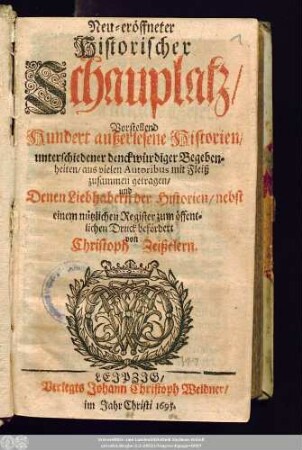 Neu-eröffneter
Historischer
Schauplatz/
Vorstellend
Hundert außerlesene Historien/
unterschiedener denckwürdiger Begeben-
heiten/ aus vielen Autoribus mit Fleiß
zusammen getragen/
und
Denen Liebhabern der Historien/ nebst
einem nützlichen Register zum öffent-
lichen Druck befördert
von
Christoph Zeißelern.
LEIPZIG/
Verlegts Johann Christoph Weidner/
im Jahr Christi 1695.